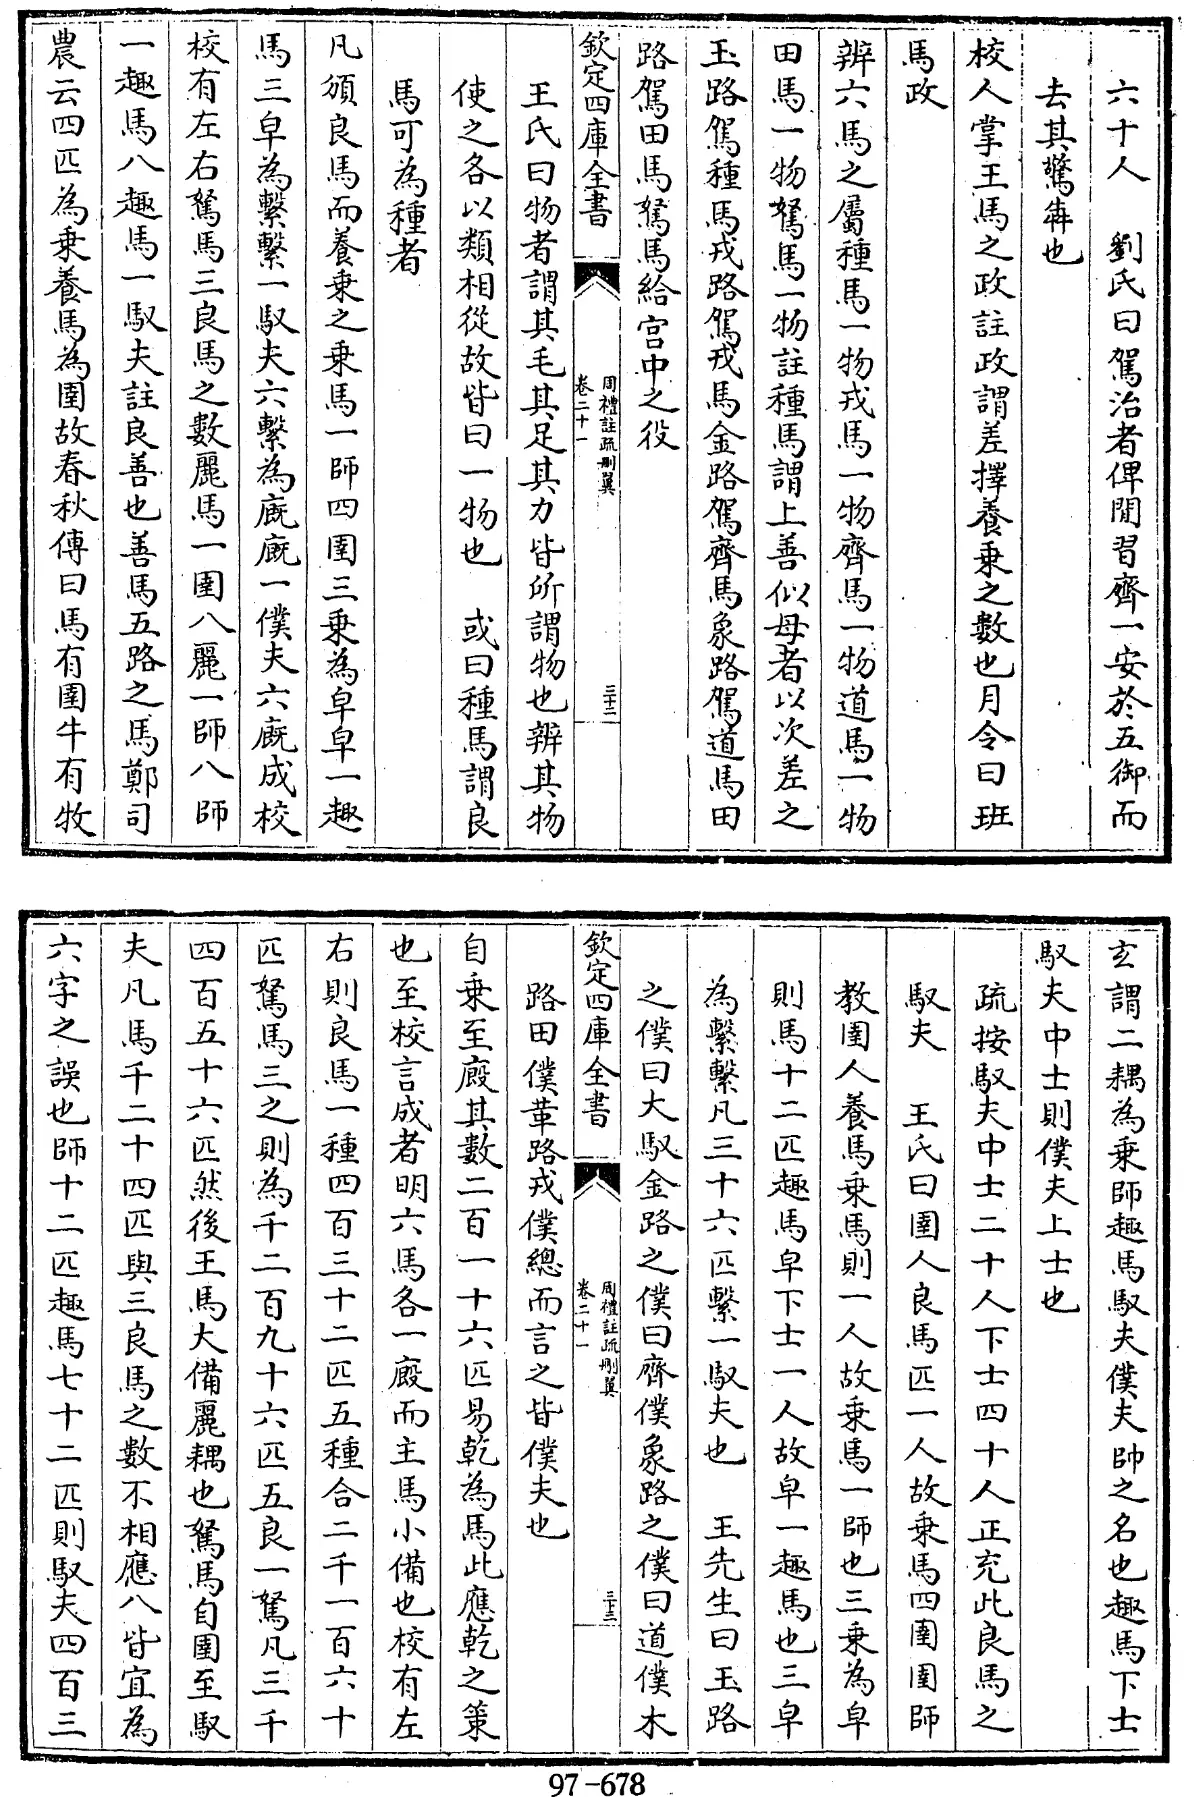 六十人　劉氏曰駕治者俾閒習齊一安於五御而
去其驚犇也
校人掌王馬之政註政謂差擇養乗之數也月令曰班
馬政
辨六馬之屬種馬一物戎馬一物齊馬一物道馬一物
田馬一物駑馬一物註種馬謂上善似母者以次差之
玉路駕種馬戎路駕戎馬金路駕齊馬象路駕道馬田
路駕田馬駑馬給宫中之役
欽定四庫全書
周禮註疏刪翼
卷二十一
三十二
王氏曰物者謂其毛其足其力皆所謂物也辨其物
使之各以類相從故皆曰一物也　或曰種馬謂良
馬可為種者
凡頒良馬而養乗之乗馬一師四圉三乗為皁皁一趣
馬三皁為繫繫一馭夫六繫為廐廐一僕夫六廐成校
校有左右駑馬三良馬之數麗馬一圉八麗一師八師
一趣馬八趣馬一馭夫註良善也善馬五路之馬鄭司
農云四匹為乗養馬為圉故春秋傳曰馬有圉牛有牧
玄謂二耦為乗師趣馬馭夫僕夫帥之名也趣馬下士
馭夫中士則僕夫上士也
疏按馭夫中士二十人下士四十人正充此良馬之
馭夫　王氏曰圉人良馬匹一人故乗馬四圉圉師
教圉人養馬乗馬則一人故乗馬一師也三乗為皁
則馬十二匹趣馬皁下士一人故皁一趣馬也三皁
為繫繫凡三十六匹繫一馭夫也　王先生曰玉路
之僕曰大馭金路之僕曰齊僕象路之僕曰道僕木
欽定四庫全書
周禮註疏刪翼
卷二十一
三十三
路田僕革路戎僕總而言之皆僕夫也
自乗至廄其數二百一十六匹易乾為馬此應乾之策
也至校言成者明六馬各一廄而王馬小備也校有左
右則良馬一種四百三十二匹五種合二千一百六十
匹駑馬三之則為千二百九十六匹五良一駑凡三千
四百五十六匹然後王馬大備麗耦也駑馬自圉至馭
夫凡馬千二十四匹與三良馬之數不相應八皆宜為
六字之誤也師十二匹趣馬七十二匹則馭夫四百三
97-678